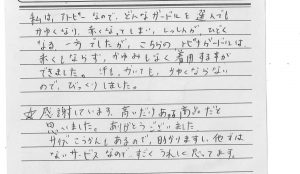 私は、アトピーなので、どんなガードルを選んでも
かゆくなり、赤くなってしまい、しっしんが、ひどく
なる一方でしたが、こちらのトピナガードルは、
赤くもならず、かゆみもなく着用することが
できました。汗を、かいても、かゆくならない
ので、びっくりしました。
感謝しています。高いだけある商品だと
思いました。ありがとうございました。
サイズこうかんもあるので、助かりますし、他では
ないサービスなので、すごくうれしく思ってます。